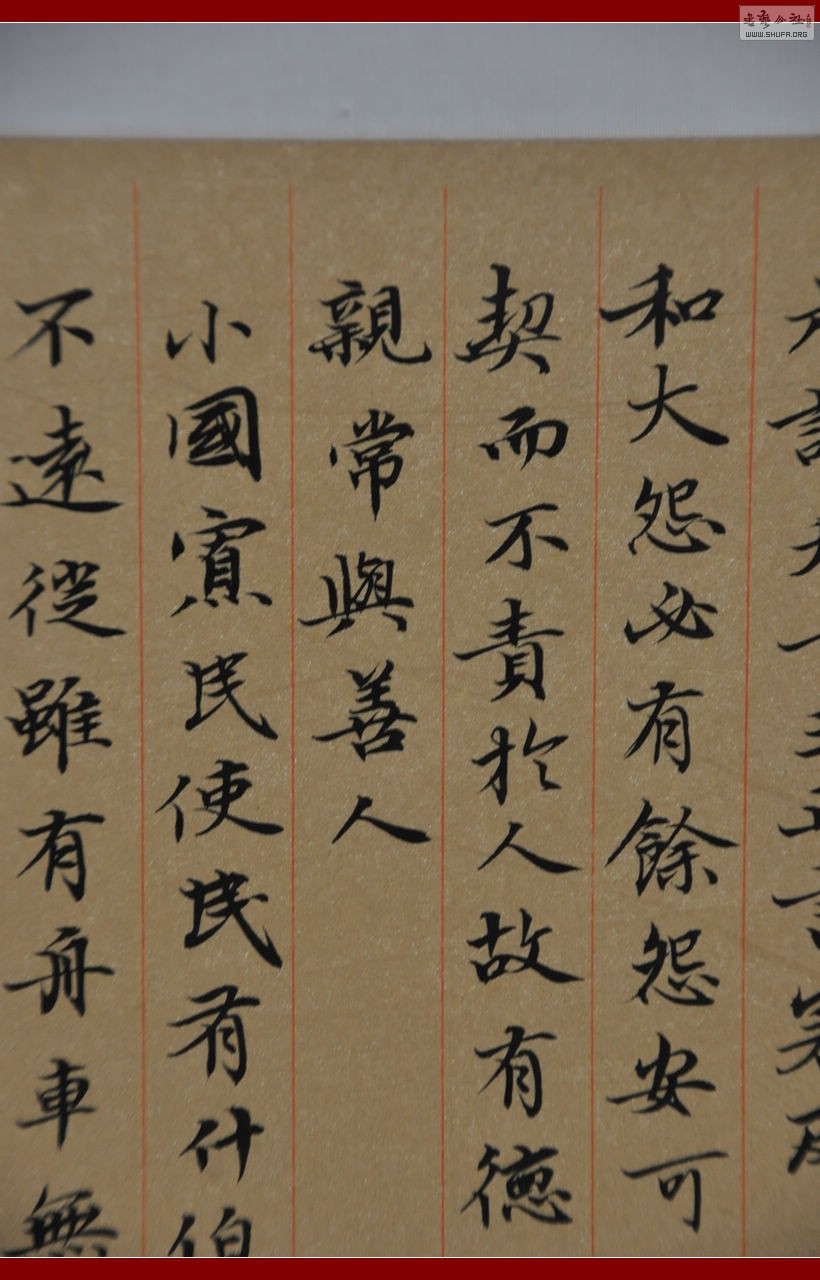 和大怨必有餘怨安可
契而不責於人故有德
親常與善人
小國寡民使民有什伯
不遠徙雖有舟車無
WWW.SHUFA.ORG